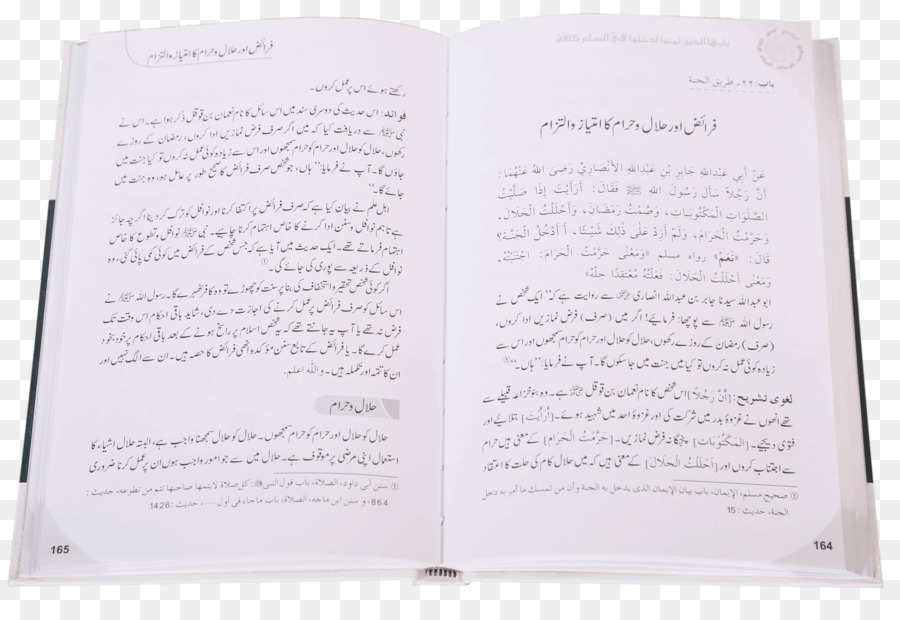 يايها الذين امنوا ادخلوا فى السلم كافة
باب:٢٢۔ طريق الجنة
فرائض اور حلال و حرام کا امتیاز و التزام
عَنْ أَبِي عَبْدِاللهِ جَابِرِ بْنِ عَبْدِاللهِ الأَنْصَارِيِّ رَضِيَ اللهُ عَنْهُمَا:
أَنَّ رَجُلاً سَأَلَ رَسُولَ اللهِ ﷺ فَقَالَ: أَرَأَيْتَ إِذَا صَلَّيْتُ
الصَّلَوَاتِ الْمَكْتُوبَاتِ، وَصُمْتُ رَمَضَانَ، وَأَحْلَلْتُ الْحَلَالَ،
وَحَرَّمْتُ الْحَرَامَ، وَلَمْ أَزِدْ عَلَى ذَلِكَ شَيْئًا، أَ أَدْخُلُ الْجَنَّةَ؟
قَالَ: «نَعَمْ» رواه مسلم «وَمَعْنَى حَرَّمْتُ الْحَرَامَ: اجْتَنَبْتُهُ،
وَمَعْنَى أَحْلَلْتُ الْحَلَالَ: فَعَلْتُهُ مُعْتَقِدًا حِلَّهُ»
ابوعبداللہ سیدنا جابر بن عبداللہ انصاری رضی اللہ عنہما سے روایت ہے کہ ’’ایک شخص نے
رسول اللہ ﷺ سے پوچھا: فرمایئے! اگر میں (صرف) فرض نمازیں ادا کروں،
(صرف) رمضان کے روزے رکھوں، حلال کو حلال اور حرام کو حرام سمجھوں اور اس سے
زیادہ کوئی عمل نہ کروں تو کیا میں جنت میں جا سکوں گا۔ آپ نے فرمایا: ’’ہاں۔‘‘①
لغوی تشریح: [أَنَّ رَجُلاً] اس شخص کا نام نعمان بن قوقل رضی اللہ عنہ ہے۔ وہ بنو خزاعہ قبیلے سے
تھے انھوں نے غزوۂ بدر میں شرکت کی اور غزوۂ احد میں شہید ہوئے۔ [أَرَأَيْتَ] بتلایئے اور
فتویٰ دیجیے۔ [الْمَكْتُوبَاتِ] پنجگانہ فرض نمازیں۔ [حَرَّمْتُ الْحَرَامَ] کے معنی ہیں حرام
سے اجتناب کروں اور [أَحْلَلْتُ الْحَلَالَ] کے معنی ہیں کہ میں حلال کام کی حلت کا اعتقاد
① صحيح مسلم، الإيمان، باب بيان الإيمان الذى يدخل به الجنة وأن من تمسك ما أمر به دخل
الجنة، حديث: 15
164
فرائض اور حلال و حرام کا امتیاز و التزام
رکھتے ہوئے اس پر عمل کروں۔
فوائد: اس حدیث کی دوسری سند میں اس سائل کا نام نعمان بن قوقل ذکر ہوا ہے۔ اس نے
نبی ﷺ سے دریافت کیا کہ میں اگر صرف فرض نمازیں ادا کروں، رمضان کے روزے
رکھوں، حلال کو حلال اور حرام کو حرام سمجھوں اور اس سے زیادہ کوئی عمل نہ کروں تو کیا جنت میں
جاؤں گا۔ آپ نے فرمایا: ’’ہاں، جو شخص صرف فرائض کا صحیح طور پر عامل ہو، وہ جنت میں
جائے گا۔‘‘
اہل علم نے بیان کیا ہے کہ صرف فرائض پر اکتفا کرنا اور نوافل کو ترک کر دینا اگرچہ جائز
ہے تاہم نوافل و سنن ادا کرنے کا خاص اہتمام کرنا چاہیے۔ نبی ﷺ نوافل و تطوع کا خاص
اہتمام فرماتے تھے۔ ایک حدیث میں آیا ہے کہ جس شخص کے فرائض میں کوئی کمی پائی گئی، وہ
نوافل کے ذریعہ سے پوری کی جائے گی۔①
اگر کوئی شخص تحقیر و استخفاف کی بنا پر سنت کو چھوڑے تو وہ کافر ٹھہرے گا۔ رسول اللہ ﷺ نے
اس سائل کو صرف فرائض پر عمل کرنے کی اجازت دے دی، شاید باقی احکام اس وقت تک
فرض نہ تھے یا آپ یہ جانتے تھے کہ یہ شخص اسلام پر راسخ ہونے کے بعد باقی احکام پر خود بخود
عمل کرے گا۔ یا فرائض کے تابع سنن مؤکدہ بھی فرائض کا حصہ ہیں۔ ان سے الگ نہیں اور
ان کا تتمہ اور تکملہ ہیں۔ واللہ اعلم.
حلال و حرام
حلال کو حلال اور حرام کو حرام سمجھوں۔ حلال کو حلال سمجھنا واجب ہے، البتہ حلال اشیاء کا
استعمال اپنی مرضی پر موقوف ہے۔ حلال میں سے جو امور واجب ہوں ان پر عمل کرنا ضروری
① سنن أبى داود، الصلاة، باب قول النبى ﷺ: كل صلاة لايتمها صاحبها تتم من تطوعه، حديث:
864، و سنن ابن ماجه، الصلاة، باب ماجاء فى أول....، حديث: 1426
165